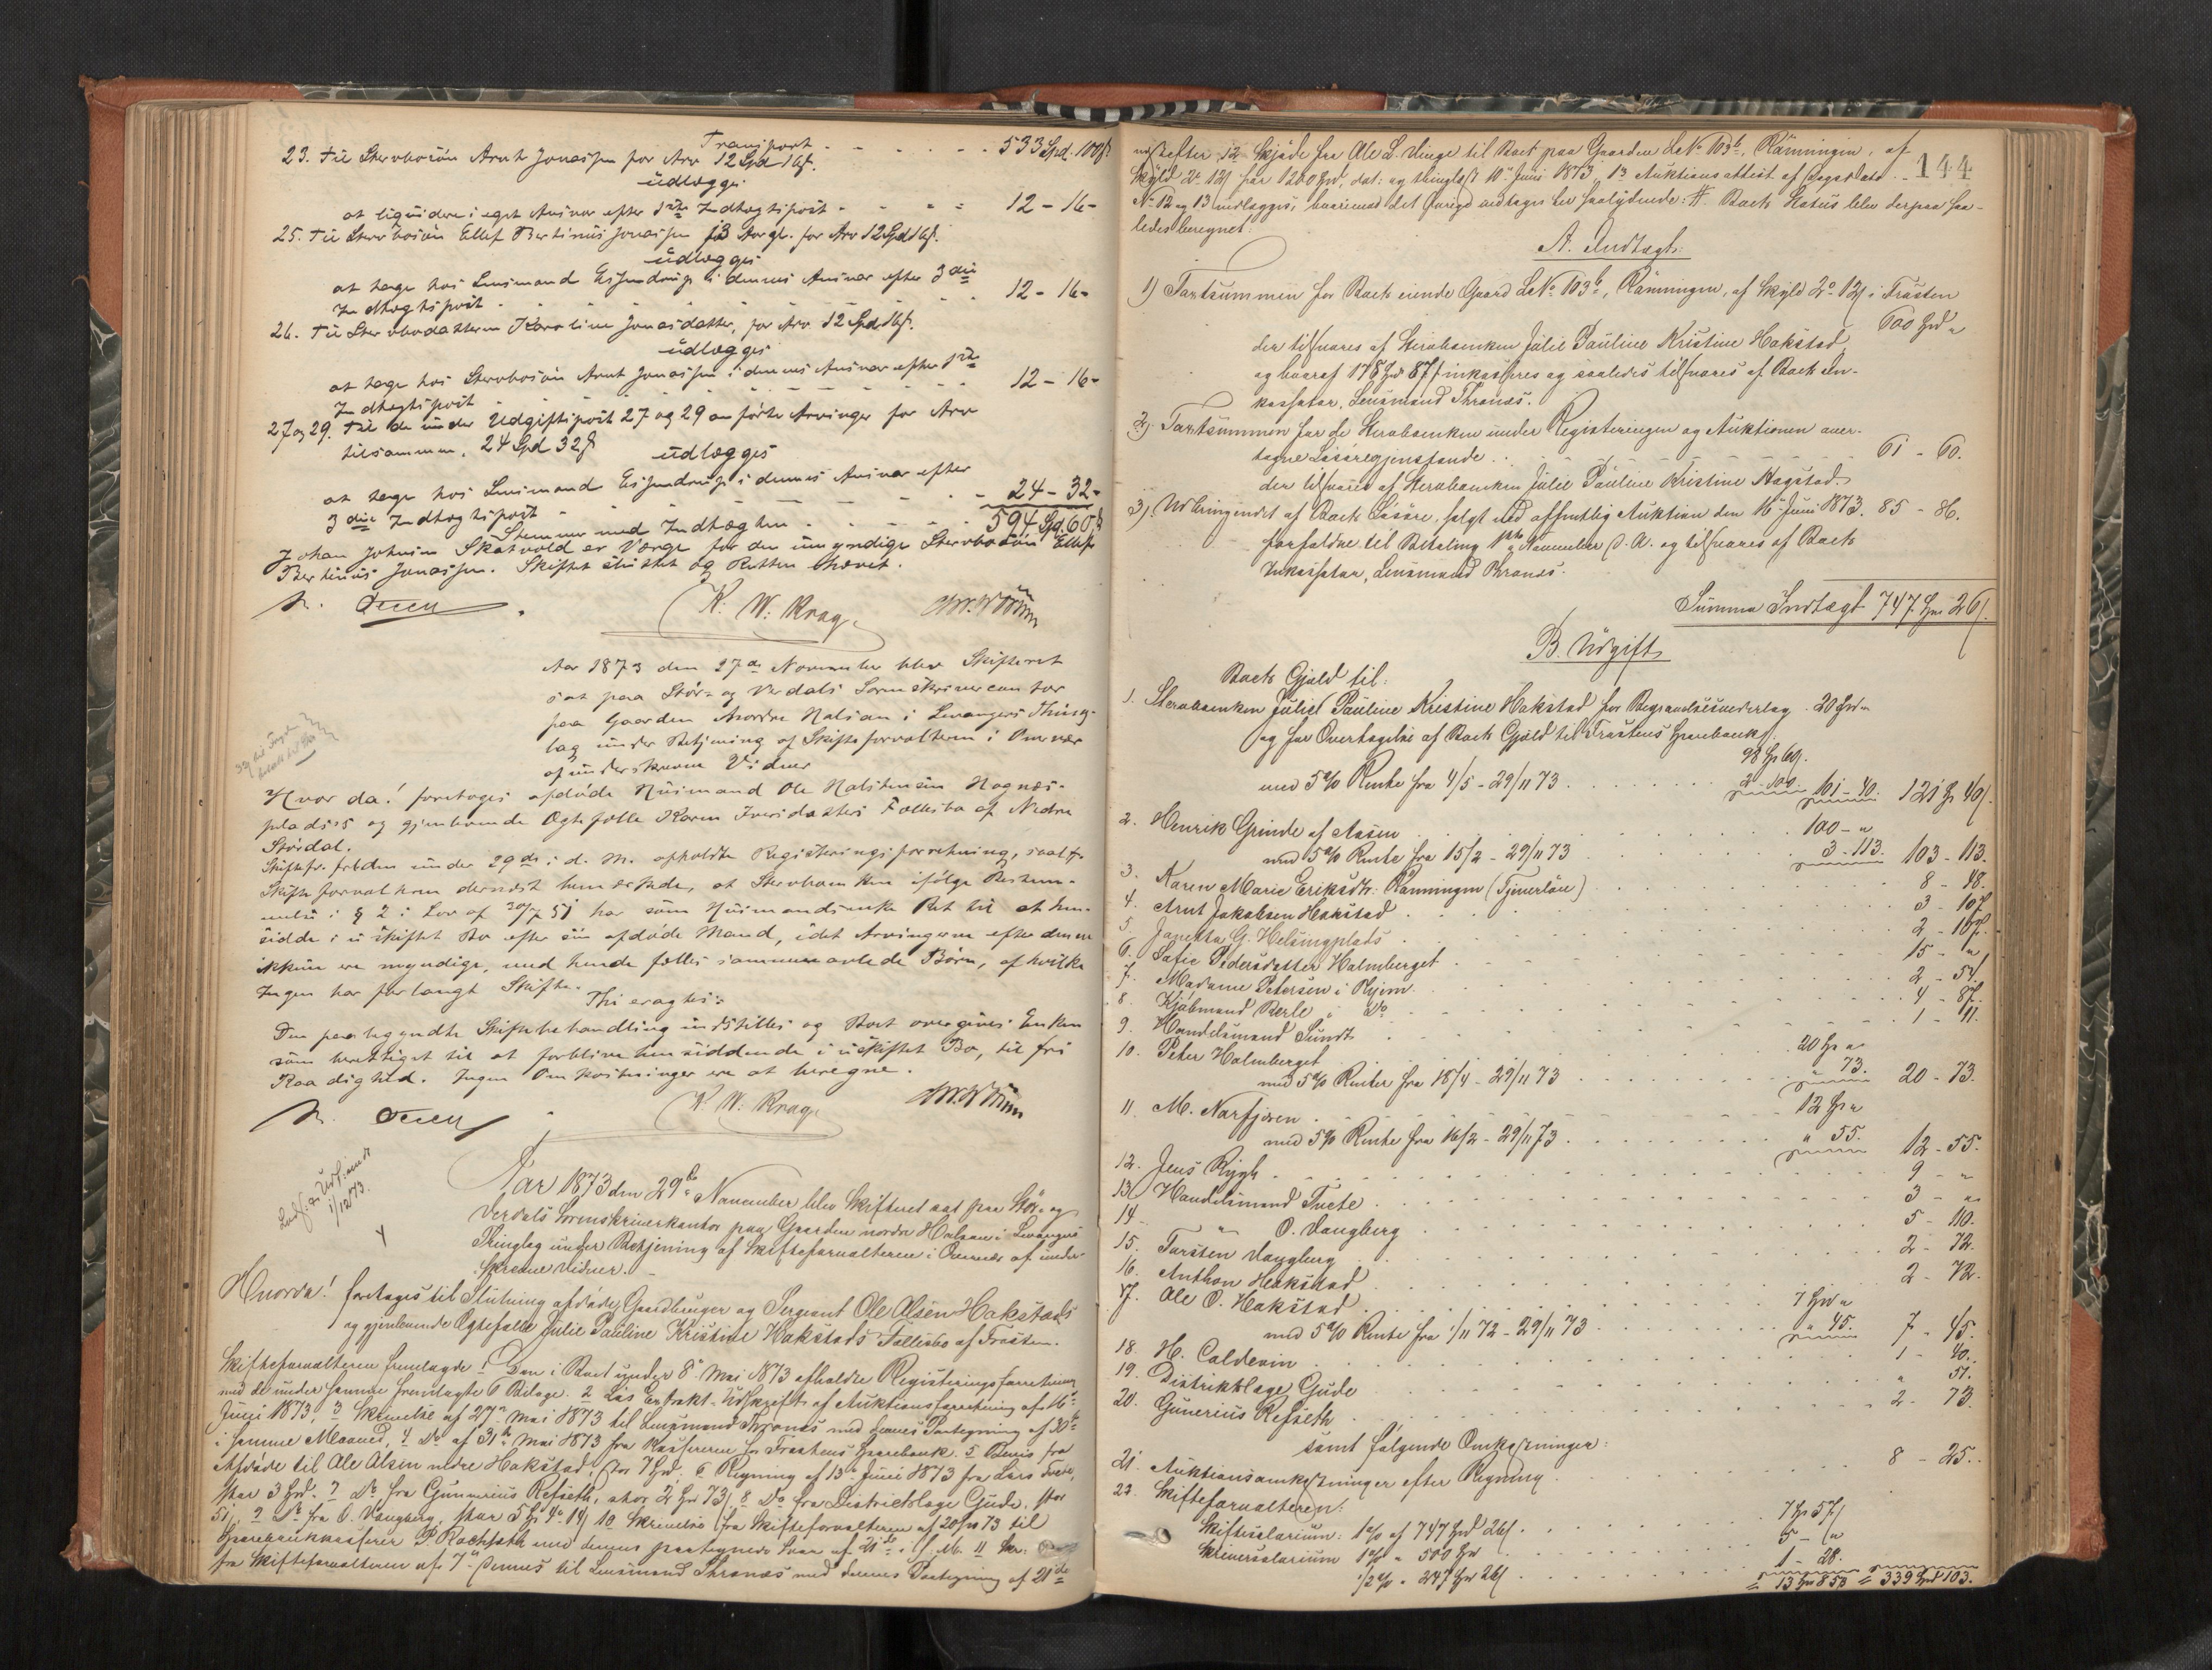 Transport - - - - - - 533 Spd. 108ß
23. Til Stervbosøn Arnt Jonassen for Arv 12 Spd 16ß.
udlægges
at liquidere i eget Ansvar efter 1ste Indtægtspost - - - - 12 - 16 -
25. Til Stervbosøn Ellef Bertinus Jonassen for Arv 12 Spd 16ß.
udlægges
at tage hos Lensmand i dennes Ansvar efter 3die
Indtægtspost - - - - - - 12 - 16 -
26. Til Stervbodatteren Karoline Jonasdatter, for Arv 12 Spd 16ß.
udlægges
at tage hos Stervbosøn Arnt Jonassen i dennes Ansvar efter 1ste
Indtægtspost - - - - - - 12 - 16 -
27 og 29. Til de under Udgiftspost 27 og 29 anførte Arvinger for Arv
tilsammen, 24 Spd 32ß
udlægges
at tage hos Lensmand i dennes Ansvar efter
3die Indtægtspost - - - - - - 24 - 32 -
Stemmer med Indtægten - - - - 594 Spd. 60ß
Johan Johnsen Skatvold er Værge for den umyndige Stervbosøn Ellef
Bertinus Jonassen. Skiftet sluttet og Retten hævet.
K. W. Krag.
Aar 1873 den 27de November blev Skifteret
sat paa Stør- og Verdals Sorenskrivercontor
paa Gaarden Nordre Halsan i Levangers Thing-
lag under Betjening af Skifteforvalteren i Overvær
af underskrevne Vidner
Hvorda! foretoges afdøde Huusmand Ole Halstensen Hognæs-
pladsens og gjenlevende Ægtefælle Karen Iversdatters Fællesbo af Nedre
Størdal.
Skifteforvalteren dernæst bemærkede, at Stervboenken ifølge Bestem-
melse i § 2 i Lov af 30/7 51 har som Huusmandsenke Ret til at hen-
sidde i uskiftet Bo efter sin afdøde Mand, idet Arvingerne efter denne
ikkun ere myndige, med hende fælles sammenavlede Børn, af hvilke
Ingen har forlangt Skifte.
Thi eragtes:
Den paabegyndte Skiftebehandling indstilles og Boet overgives Enken
som berettiget til at forblive hensiddende i uskiftet Bo, til fri
Raadighed. Ingen Omkostninger ere at beregne.
K. W. Krag.
1/12 73.
Aar 1873 den 29de November blev Skifteret sat paa Stør- og
Verdals Sorenskriverkontor paa Gaarden nordre Halsan i Levangers
Thinglag under Betjening af Skifteforvalteren i Overvær af under-
skrevne Vidner.
Hvorda! foretoges til Slutning afdøde Gaardbruger og Sergeant Ole Olsen Hakstads
og gjenlevende Ægtefælle Julie Pauline Kristine Hakstads Fællesbo af Frosten.
Skifteforvalteren fremlagde: 1 Den i Boet under 8de Mai 1873 afholdte Registreringsforretning
med de under samme fremlagte 6 Bilage. 2 Løs Extrakt-Udskrift af Auktionsforretning af 16de
Juni 1873, 3 Skrivelse af 27de Mai 1873 til Lensmand Thronæs med dennes Paategning af 30te
i samme Maaned, 4 Do af 31te Mai 1873 fra Kassereren for Frostens Sparebank. 5 Bevis fra
Afdøde til Ole Olsen nedre Hakstad, stor 7 Spd. 6 Regning af 13de Juni 1873 fra Lars Tvete,
stor 3 Spd. 7 Do fra Gunerius Refseth, stor 2 Spd 73ß, 8 Do fra Districtslæge Gude, stor
51ß, 9 Do fra O. Vangberg, stor 5 Spd 10 Skrivelse fra Skifteforvalteren af 73 til
Sparebankkasserer P. med dennes paategnede Svar af 21de
fra Skifteforvalteren af 7de dennes til Lensmand Thronæs med dennes Paategning af 21de
144
næstefter, 12 Skjøde fra Ole L. Vinge til Boet paa Gaarden LNo 103b, Rønningen, af
Skyld 2o 12ß for 1200 Spd, dat: og thinglæst 10de Juni 1873, 13 Auktionsattest af
No 12 og 13 indlægges, hvorimod det øvrige vedtages der saalydende: # Boets Status blev derpaa saa-
ledes beregnet:
A. Indtægt:
1) Taxtsummen for Boets eiende Gaard LNo 103b, Rønningen, af Skyld 2o 12ß i Frosten
600 Spd "
der tilsvares af Stervboenken Julie Pauline Kristine Hakstad,
og hvoraf 178 Spd 87ß inkasseres og saaledes tilsvares af Boets In-
kassator, Lensmand Thronæs.
2) Taxtsummen for de Stervboenken under Registreringen og Auktionen over-
tagne Løsøregjenstande . . - - - - 61 - 60.
der tilsvares af Stervboenken Julie Pauline Kristine Hagstad.
3) Udbringendet af Boets Løsøre, solgt ved offentlig Auktion den 16de Juni 1873. 85 - 86.
forfaldne til Betaling 1ste November d. A. og tilsvares af Boets
Inkassator, Lensmand Thronæs.
Summa Indtægt 747 Spd 26ß.
B. Udgift
Boets Gjæld til:
1. Stervboenken Julie Pauline Kristine Hakstad for Begravelsesvederlag . 20 Spd "
og for Overtagelse af Boets Gjæld til Frostens Sparebank
98 Spd 60ß.
med 5% Rente fra 4/5 - 29/11 73 . . . . . . 2 - 100. 101 - 40. 121 Spd 40ß.
2. Henrik Grinde af Aasen . . . . 100 - "
med 5% Rente fra 15/2 - 29/11 73 . . . 3 - 113. 103 - 113.
3. Karen Marie Eriksdtr: Rønningen (Tjenerløn) . . . . 8 - 48.
4. Arnt Jakobsen Hakstad . . . . 3 - 107.
5. Janetta G. Helsingplads . . . . 2 - 107.
6. Sofie Pedersdatter Holmberget . . . . 15 - "
7. Madame Petersen i Thjem . . . . 2 - 54.
8. Kjøbmand Berle " Do . . . . 4 - 87.
9. Handelsmand Sundt . . . . 1 - 11.
10. Peter Holmberget . . . . 20 Spd "
med 5% Renter fra 18/4 - 29/11 73 . . . . " 73. 20 - 73.
11. M. Norfjæren . . . . 12 Spd "
med 5% Rente fra 16/2 - 29/11 73 . . . . " 55. 12 - 55.
12. Jens Rygh . . . . 9 - "
13. Handelsmand Tvete . . . . 3 - "
14 - " O. Vangberg . . . . 5 - 110.
15. Torsten Vangberg . . . . 2 - 72.
16. Anthon Hakstad . . . . 2 - 72.
17. Ole O. Hakstad . . . . 7 Spd "
med 5% Rente fra 1/11 72 - 29/11 73 . . . . " 45. 7 - 45.
18. H. Coldevin . . . . 1 - 40.
19. Distriktslæge Gude . . . . " 51.
20. Gunerius Refseth . . . . 2 - 73.
samt følgende Omkostninger:
21. Auktionsomkostninger efter Regning . . . . 8 - 25.
22. Skifteforvalteren:
Skiftesalarium: 1% af 747 Spd 26ß . . . . 7 Spd 57ß
Skriversalarium 1% " 500 Spd . . . . 5 - "
1/2% " 247 Spd 26ß . . . . 1 - 28.
= 13 Spd 85ß = 339 Spd 103.